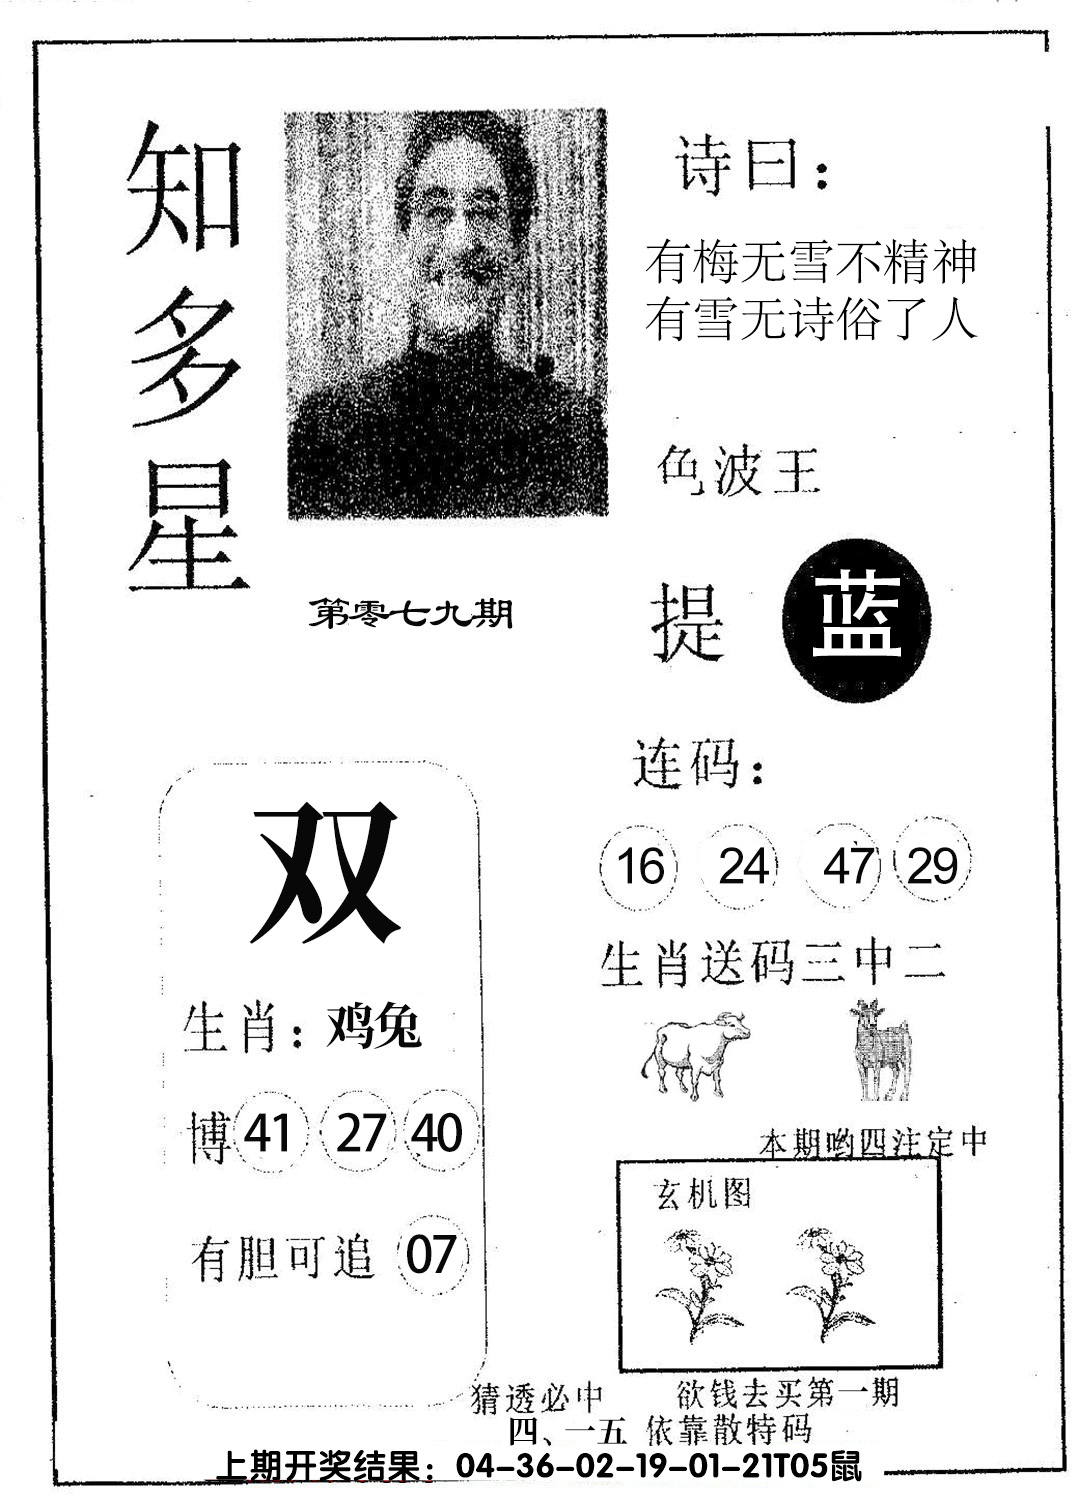 知多星
诗曰：
有梅无雪不精神
有雪无诗俗了人
色波王
第零七九期
提 蓝
连码：
16 24 47 29
双
生肖送码三中二
生肖：鸡兔
博 41 27 40
本期哟四注定中
玄机图
有胆可追 07
猜透必中 欲钱去买第一期
四、一五 依靠散特码
上期开奖结果：04-36-02-19-01-21T05鼠